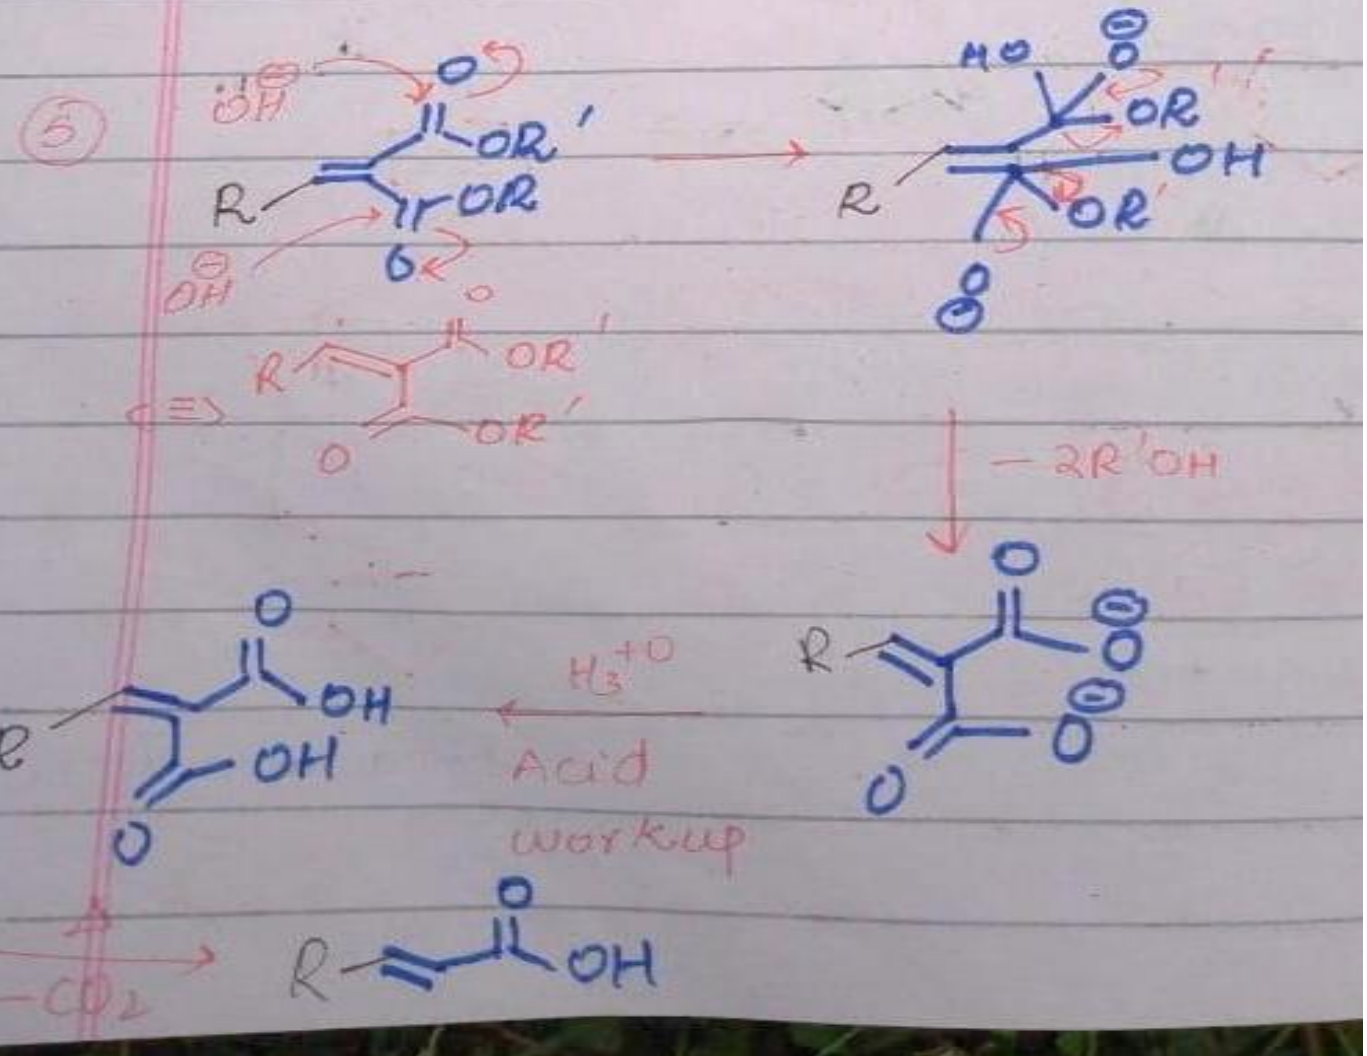 5
OH⊖ O
OR'
R OR
OH⊖ O
HO O⊖
OR
OH
R OR'
O⊖
<=> R O OR'
O OR'
- 2R'OH
O
R O⊖
O⊖
O
H3+O
Acid
workup
O
R OH
OH
O
Δ
-CO2
R O OH